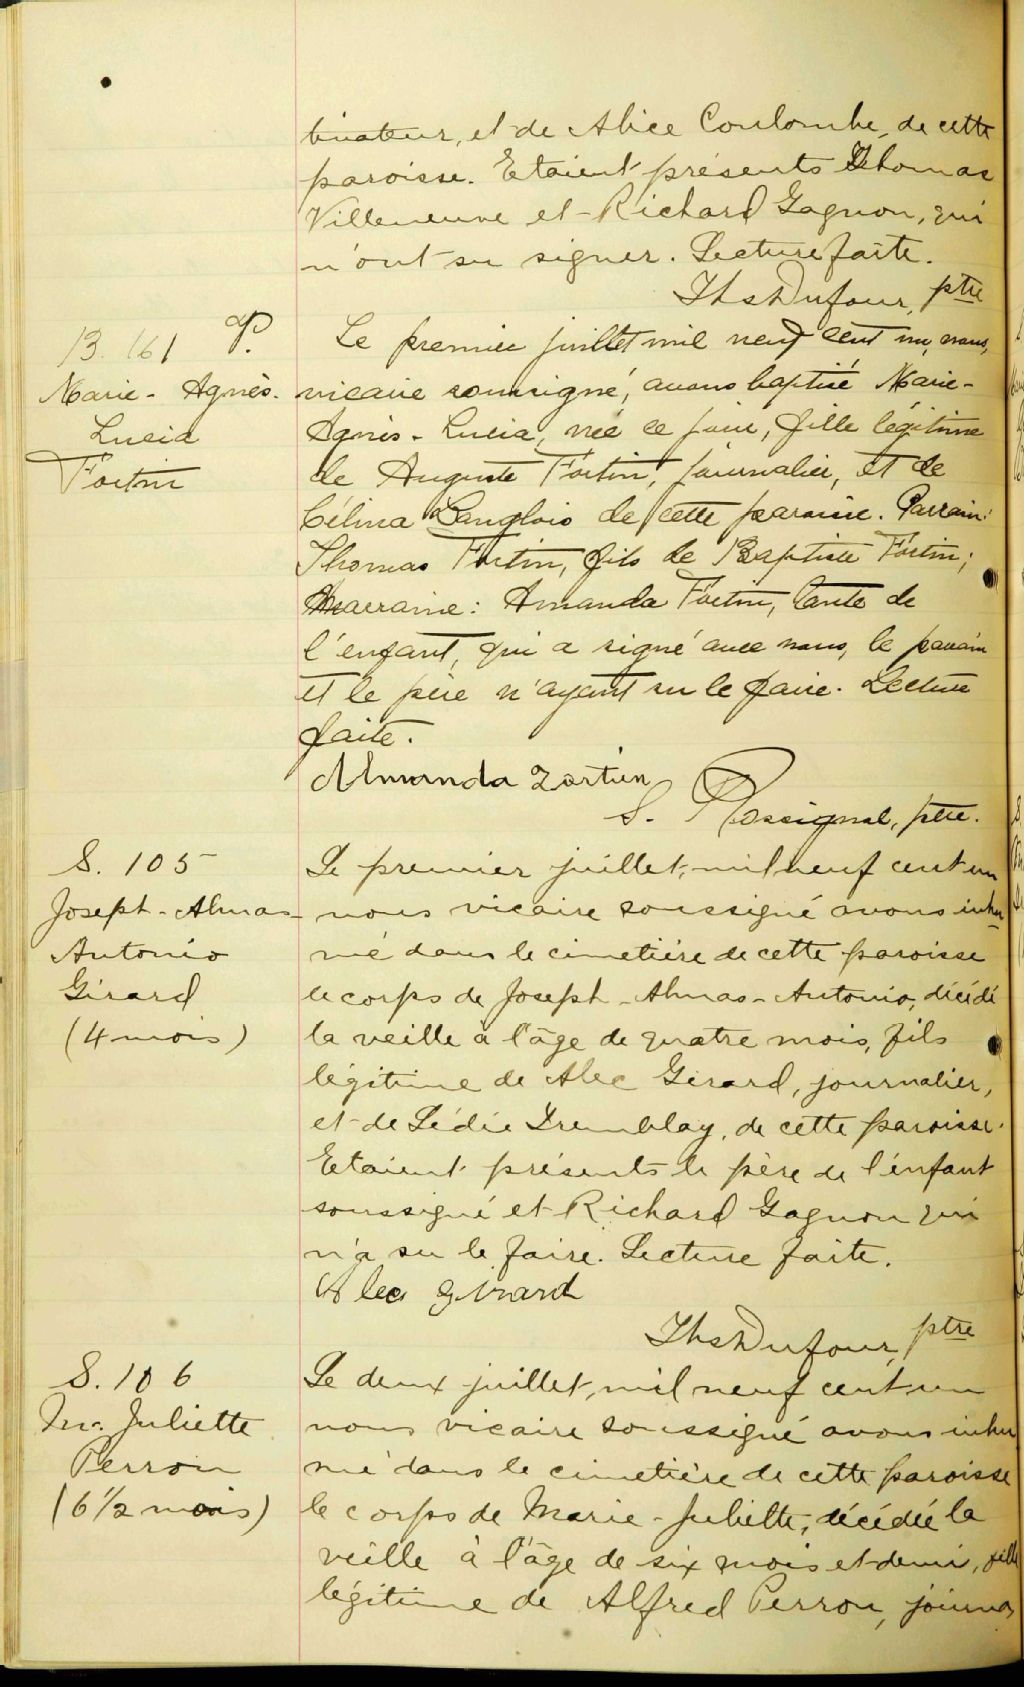 tivateur, et de Alice Coulombe, de cette
paroisse. Etaient présents Thomas
Villeneuve et Richard Gagnon, qui
n'ont su signer. Lecture faite.
Ths Dufour, ptre
B. 161
Marie-Agnès-
Lucia
Fortin
Le premier juillet mil neuf cent un, nous,
vicaire soussigné, avons baptisé Marie-
Agnès-Lucia, née ce jour, fille légitime
de Auguste Fortin, journalier, et de
Célina Langlois de cette paroisse. Parrain:
Thomas Fortin, fils de Baptiste Fortin;
Marraine: Amanda Fortin, tante de
l'enfant, qui a signé avec nous, le parrain
et le père n'ayant su le faire. Lecture
faite.
Amanda Fortin
S. Rossignol, ptre.
S. 105
Joseph-Almas-
Antonio
Girard
(4 mois)
Le premier juillet, mil neuf cent un
nous vicaire soussigné avons inhu-
mé dans le cimetière de cette paroisse
le corps de Joseph-Almas-Antonio, décédé
la veille à l'âge de quatre mois, fils
légitime de Alec Girard, journalier,
et de Lédie Tremblay, de cette paroisse.
Etaient présents le père de l'enfant
soussigné et Richard Gagnon qui
n'a su le faire. Lecture faite.
Alec Girard
Ths Dufour, ptre
S. 106
M. Juliette
Perron
(6 1/2 mois)
Le deux juillet, mil neuf cent un
nous vicaire soussigné avons inhu
mé dans le cimetière de cette paroisse
le corps de Marie-Juliette, décédée la
veille à l'âge de six mois et demi, fille
légitime de Alfred Perron, journa